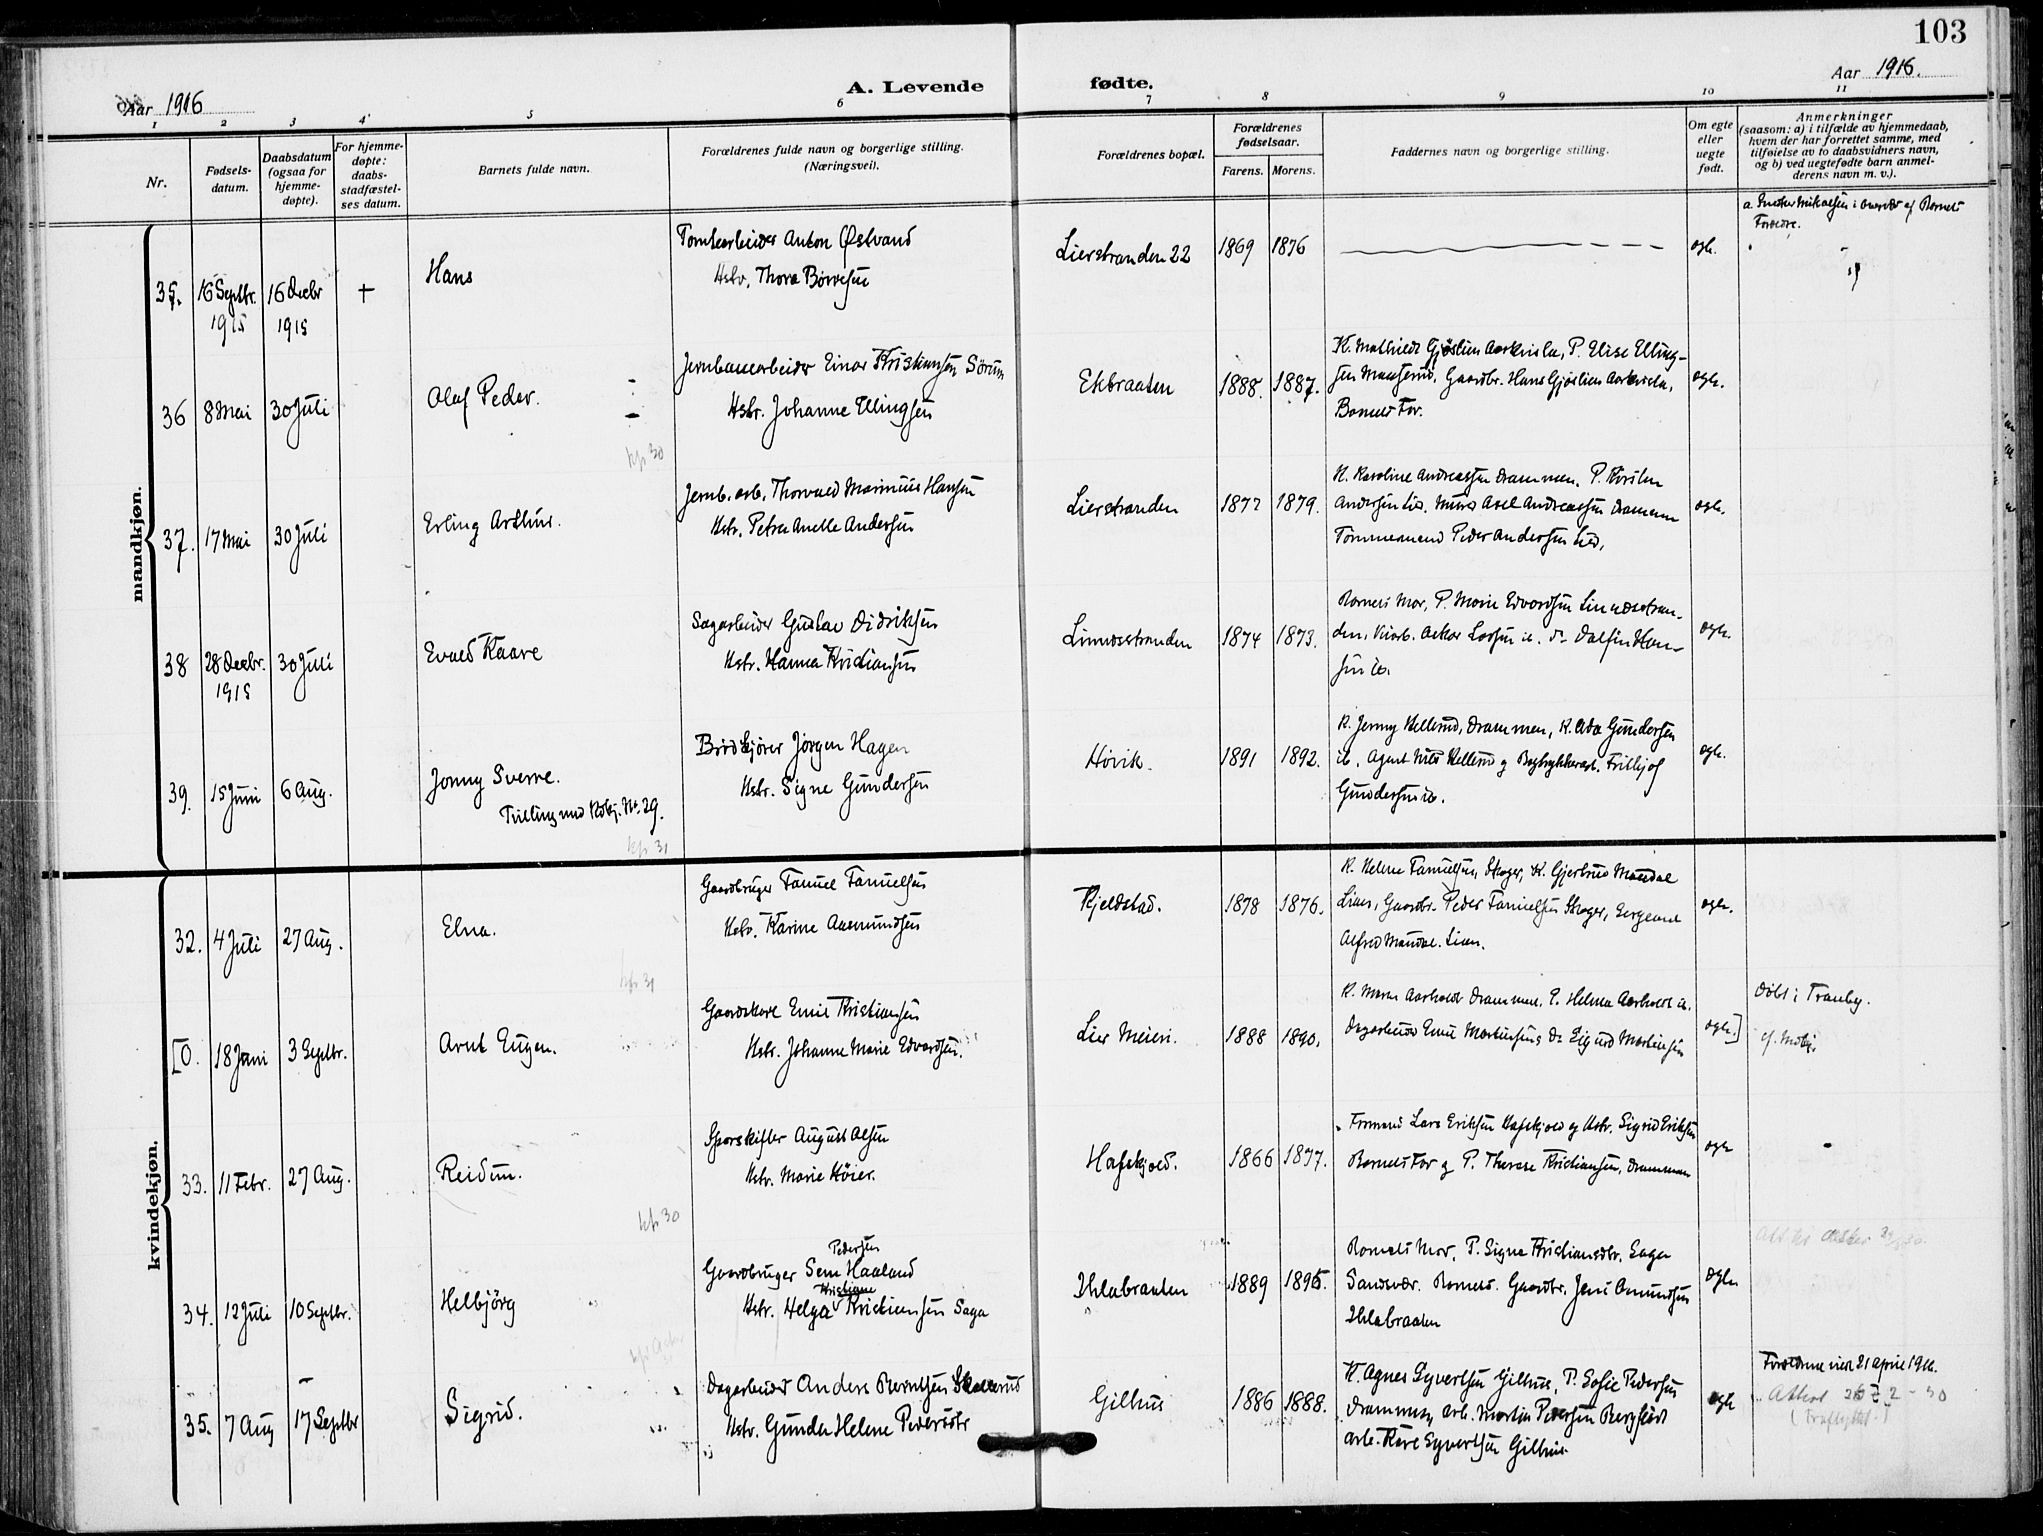 103
Aar 1916
A. Levende fødte.
Aar 1916.
1 2 3 4 5 6 7 8 9 10 11
Nr.
Fødsels-
datum.
Daabsdatum
(ogsaa for
hjemme-
døpte).
For hjemme-
døpte:
daabs-
stadfæstel-
ses datum.
Barnets fulde navn.
Forældrenes fulde navn og borgerlige stilling.
(Næringsvei).
Forældrenes bopæl.
Forældrenes
fødselsaar.
Farens. Morens.
Faddernes navn og borgerlige stilling.
Om egte
eller
uegte
født.
Anmerkninger
(saasom: a) i tilfælde av hjemmedaab,
hvem der har forrettet samme, med
tilføielse av to daabsvidners navn,
og b) ved uegtefødte barn anmel-
derens navn m. v.).
mandkjøn.
35. 16 Septbr. 1915 16 Decbr 1915 + Hans
Anton Østvand
Hstr. Thora
Lierstranden 22 1869 1876 egte.
36 8 Mai 30 Juli Olaf Peder.
Jernbanearbeider Einar Kristiansen Sörum
Hstr. Johanne Ellingsen
Ekbraaten 1888. 1887.
K. Mathilde Gjøslien P. Elise Elling-
sen Gaardbr. Hans Gjøslien
Barnets Far.
egte.
kfr 30
37. 17 Mai 30 Juli Erling Arthur.
Jernb. arb. Thorvald Marinius Hansen
Hstr. Petra Anette Andersen
Lierstranden 1877 1879.
K. Karoline Andreassen Drammen. P. Kirsten
Andersen Lier. Murer Axel Andreassen Drammen
Tømmermand Peder Andersen Lier.
egte.
38 28 Decbr. 1915 30 Juli Evald Kaare
Sagarbeider Gustav Didriksen
Hstr. Hanna Kristiansen
Linnesstranden 1874 1873.
Barnets Mor, P. Marie Edvardsen Linnesstran-
den. Oskar Larsen ib. Do Dalfin Han-
sen ib.
egte.
39. 15 Juni 6 Aug. Jonny Sverre.
Tvilling med Kvkj. Nr. 29.
Brödkjører Jörgen Hagen
Hstr. Signe Gundersen
Høvik. 1891 1892.
K. Jenny Hellerud, Drammen, K. Ada Gundersen
ib. Agent Nils Hellerud og Fritjof
Gundersen ib.
egte.
kfr. 31
kvindekjøn.
32. 4 Juli 27 Aug. Elna.
Gaardbruger Fanuel Fanuelsen
Hstr. Karine Aasmundsen
Kjeldstad. 1878 1876.
K. Helene Fanuelsen, Skoger, K. Gjertrud Mandal
Lian, Gaardbr. Peder Fanuelsen Skoger, Sergeant
Alfred Mandal. Lian.
egte.
kfr 31
[0. 18 Juni 3 Septbr. Arnt Eugen.
Gaardskarl Emil Kristiansen
Hstr. Johanne Marie Edvardsen.
Lier Meieri. 1888 1890.
K. Marie Aarholt Drammen, P. Helma Aarholt ib.
Dagarbeider Emil Martinsen, Do Sigurd Martinsen
egte.]
Döbt i Tranby.
cf. Mdkj.
33. 11 Febr. 27 Aug. Reidun.
Sporskifter August Olsen
Hstr. Marie Höier.
Hafskjold. 1866 1877.
Formand Lars Eriksen Hafskjold og Hstr. Sigrid Eriksen
Barnets Far og P. Therese Kristiansen, Drammen
egte
kfr 30
34. 12 Juli 10 Septbr. Helbjörg
Pedersen
Gaardbruger Sem Haaland
Kristiane
Hstr. Helga Kristiansen Saga
Ihlebraaten 1889 1895.
Barnets Mor, P. Signe Kristiansdtr. Saga
Sandsvær. Barnets. Gaardbr. Jens Amundsen
Ihlebraaten
egte
35. 7 Aug 17 Septbr Sigrid.
Dagarbeider Anders Berntsen Skallerud
Hstr. Gunda Helene Pedersdtr
Gilhus 1886 1888.
K. Agnes Syvertsen Gilhus, P. Sofie Pedersen
Drammen, arb. Martin Pedersen Bergflødt
arb. Kare Syvertsen Gilhus.
egte
Forældrene viet 21 April 1916.